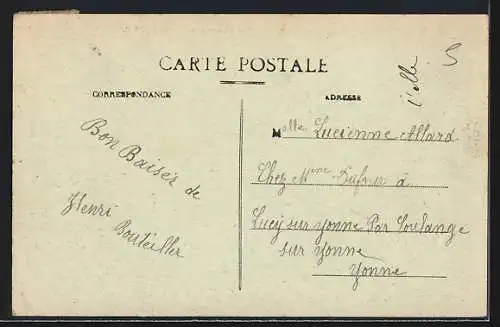 CARTE POSTALE
CORRESPONDANCE
ADRESSE
Bon Baiser de
Henri
Bouteiller
Melle Lucienne Allard
Chez Mme à
Lucy sur yonne Par Coulange
sur yonne
yonne